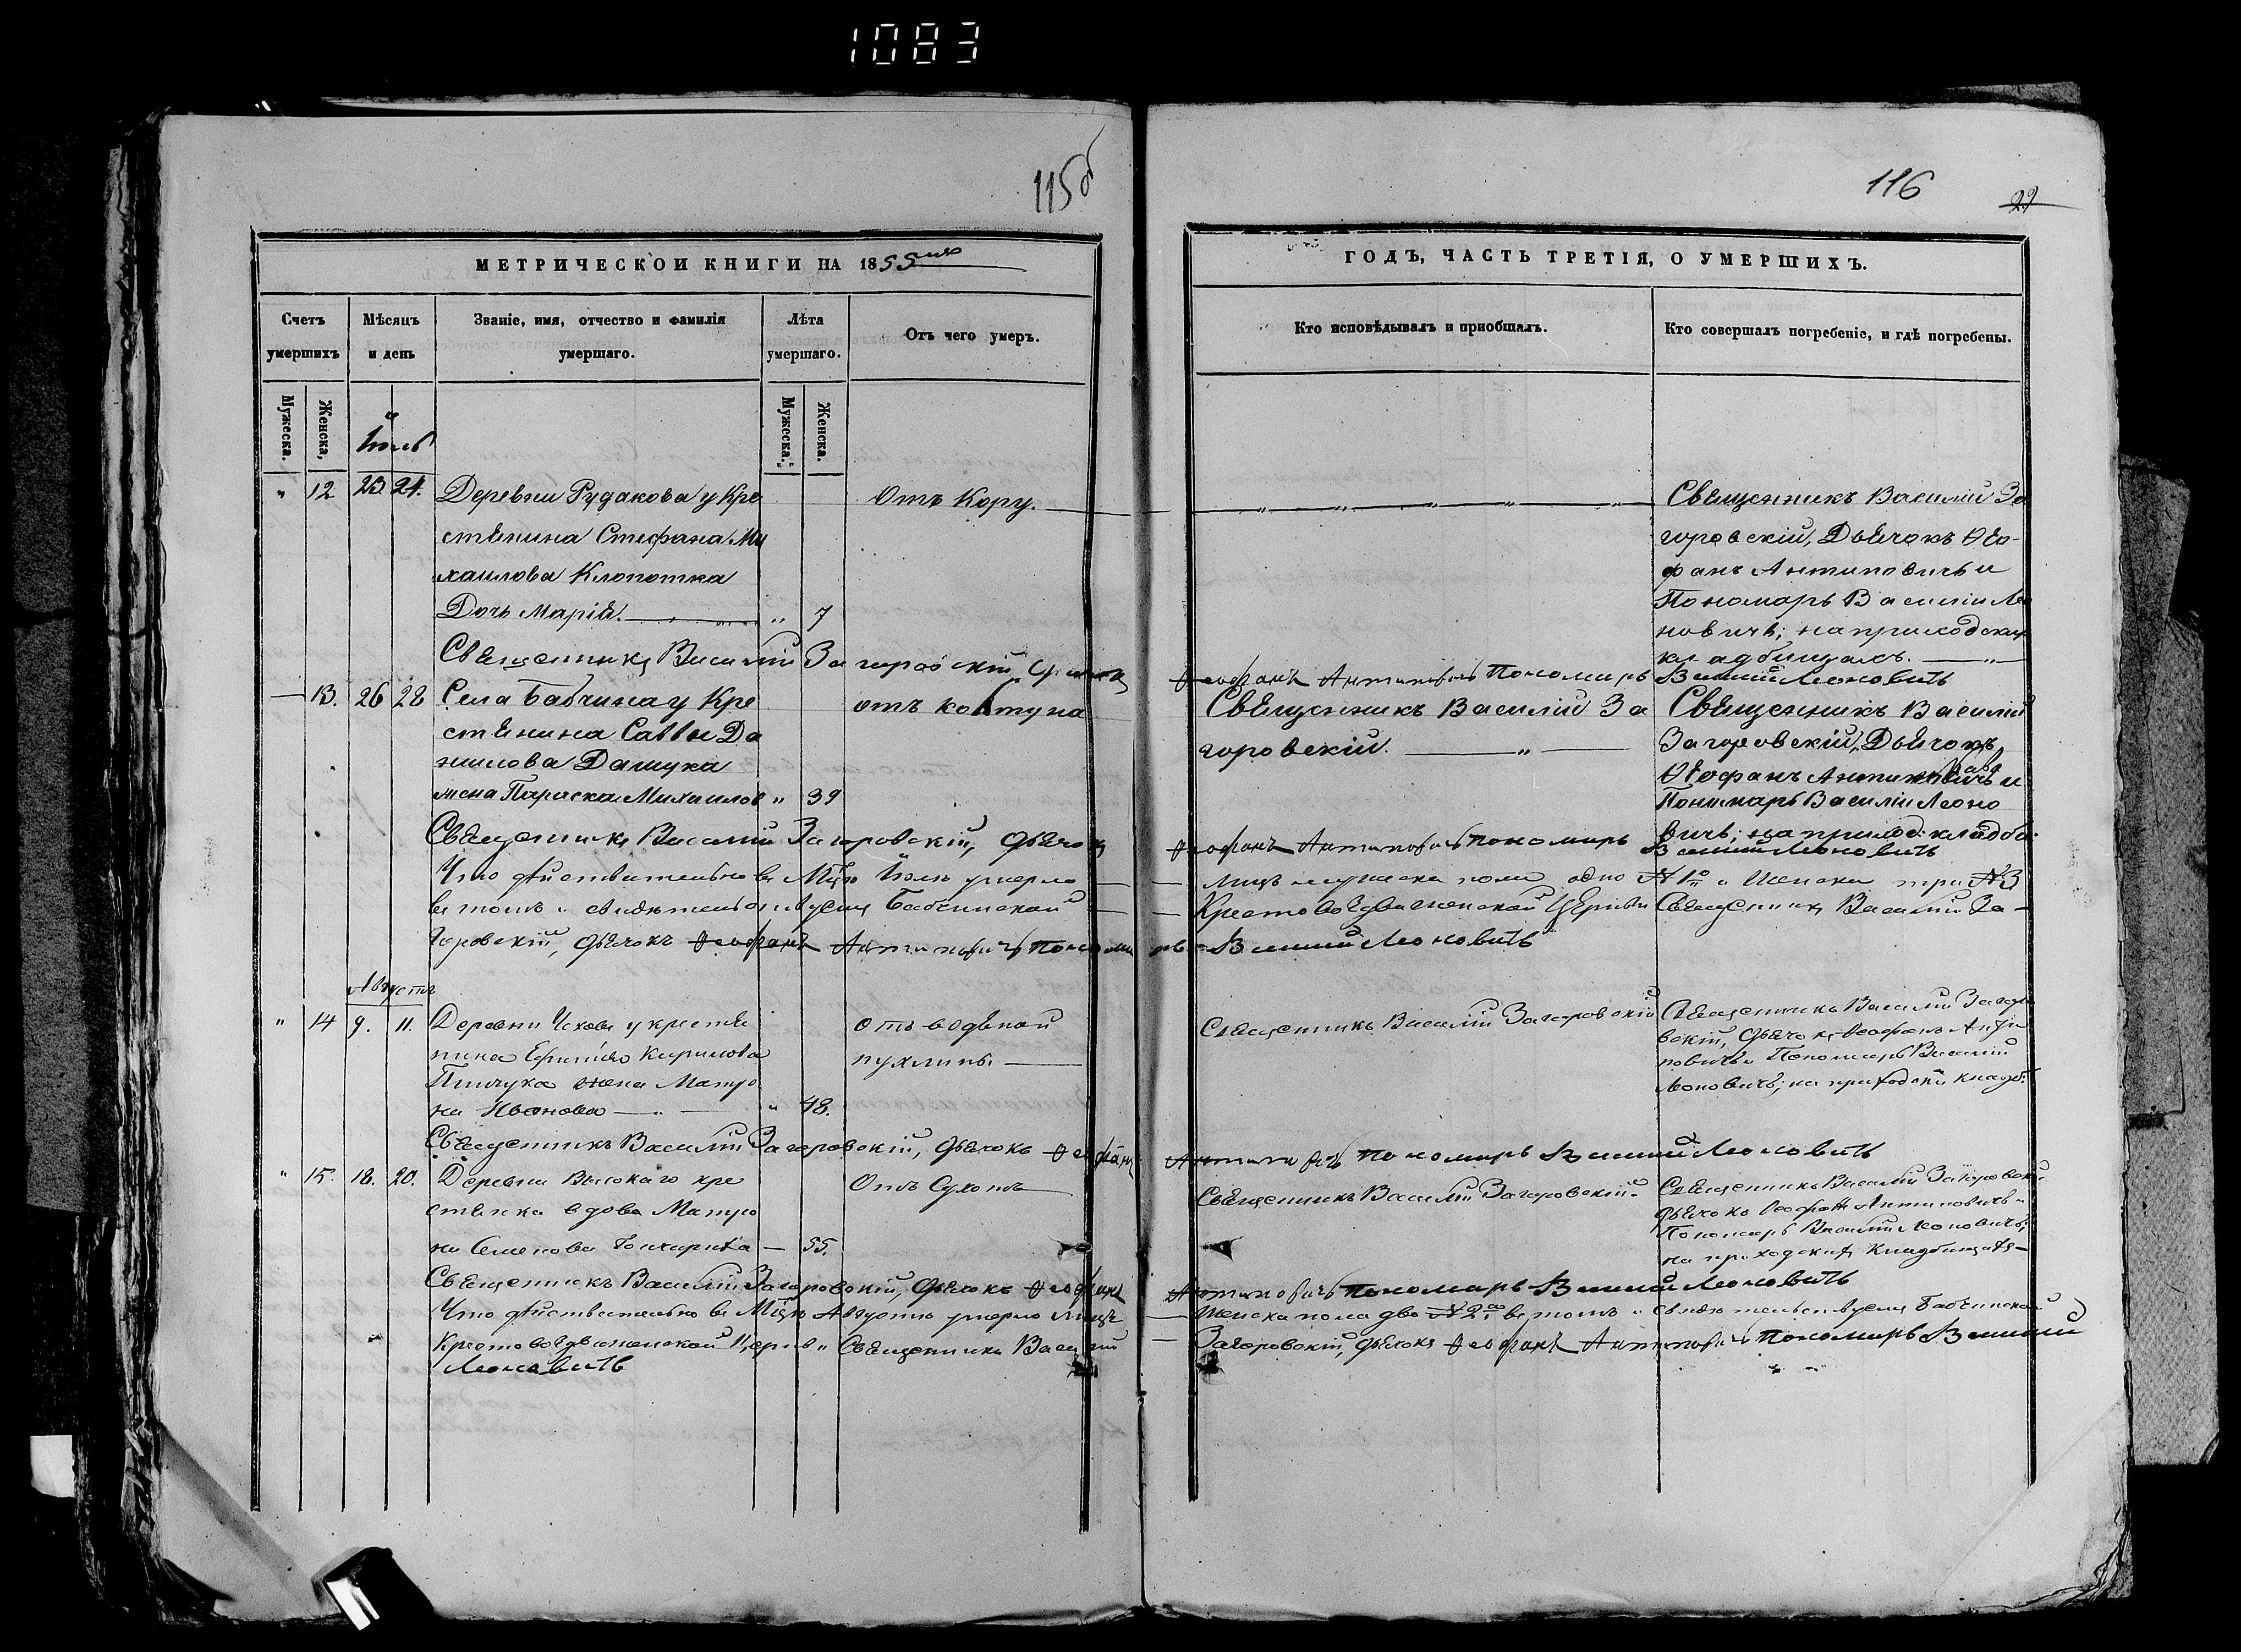 1083
115об
116
29
МЕТРИЧЕСКОЙ КНИГИ НА 1855
ГОДЪ, ЧАСТЬ ТРЕТІЯ, О УМЕРШИХЪ.
Счетъ умершихъ
Мѣсяцъ и день
Званіе, имя, отчество и фамилія умершаго.
Лѣта умершаго.
Отъ чего умеръ.
Кто исповѣдывалъ и пріобщалъ.
Кто совершалъ погребеніе, и гдѣ погребены.
Мужеска.
Женска,
Мужеска.
Женска.
Іюль
" 12 23 24.
Деревни Рудакова у кре
стянина Стефана Ми
хаилова Клопотка
Дочь Марія. " 7
Отъ Кору.
Священникъ Василій За
горовскій, Дьячокъ Ѳео-
фанъ Антиповичь и
Пономарь Василій Лео
новичь; на приходских
кладбищахъ.
Священникъ Василій Загоровскій, Дьячокъ
Ѳеофанъ Антиповичь Пономарь Василій Леоновичь
13. 26 28
Села Бабчина у Кре
стянина Саввы Да
нилова Дашука
жена Параска Михаилов " 39
отъ колтуна
Священникъ Василій За
горовскій.
Священникъ Василій
Загоровскій, Дьячокъ
Ѳеофанъ Антиповичь и
Пономарь Василій Леоно
вичь; на приход: кладби:
Священникъ Василій Загоровскій, Дьячокъ
Ѳеофанъ Антиповичь Пономарь Василій Леоновичь
Что дѣйствительно въ Мцѣ Іюлѣ умерло
лицъ мужеска пола одно № 1º и Женска три № 3
въ томъ и свидѣтельствуемъ Бабчинской
Крестовоздвиженской Церкви Священникъ Василій За-
горовскій, Дьячокъ Ѳеофанъ Антиповичь Пономарь Василій Леоновичь
Августъ
" 14 9. 11.
Деревни Чехова у крестья
нина
Кирилова
Пинчука жена Матро
на Иванова " 48.
отъ водяной
пухлины
Священникъ Василій Загоровскій
Священникъ Василій Загоро
вскій, Дьячокъ Ѳеофанъ Анти
повичь и Пономарь Василій
Леоновичь; на приходскій кладб:
Священникъ Василій Загоровскій, Дьячокъ Ѳеофанъ
Антиповичь Пономарь Василій Леоновичь
" 15. 18. 20.
Деревни Высокаго кре
стянка вдова Матро
на Семенова 55.
Отъ Сухотъ
Священникъ Василій Загоровскій
Священникъ Василій Загоровскій
Дьячокъ Ѳеофанъ Антиповичь и
Пономарь Василій Леоновичь;
на приходскихъ кладбищахъ
Священникъ Василій Загоровскій, Дьячокъ Ѳеофанъ
Антиповичь Пономарь Василій Леоновичь
Что дѣйствительно въ Мцѣ Августѣ умерло лицъ
Женска пола два № 2º въ томъ и свидѣтельствуемъ Бабчинской
Крестовоздвиженской Церкви Священникъ Василій
Загоровскій, Дьячокъ Ѳеофанъ Антиповичь Пономарь Василій
Леоновичь